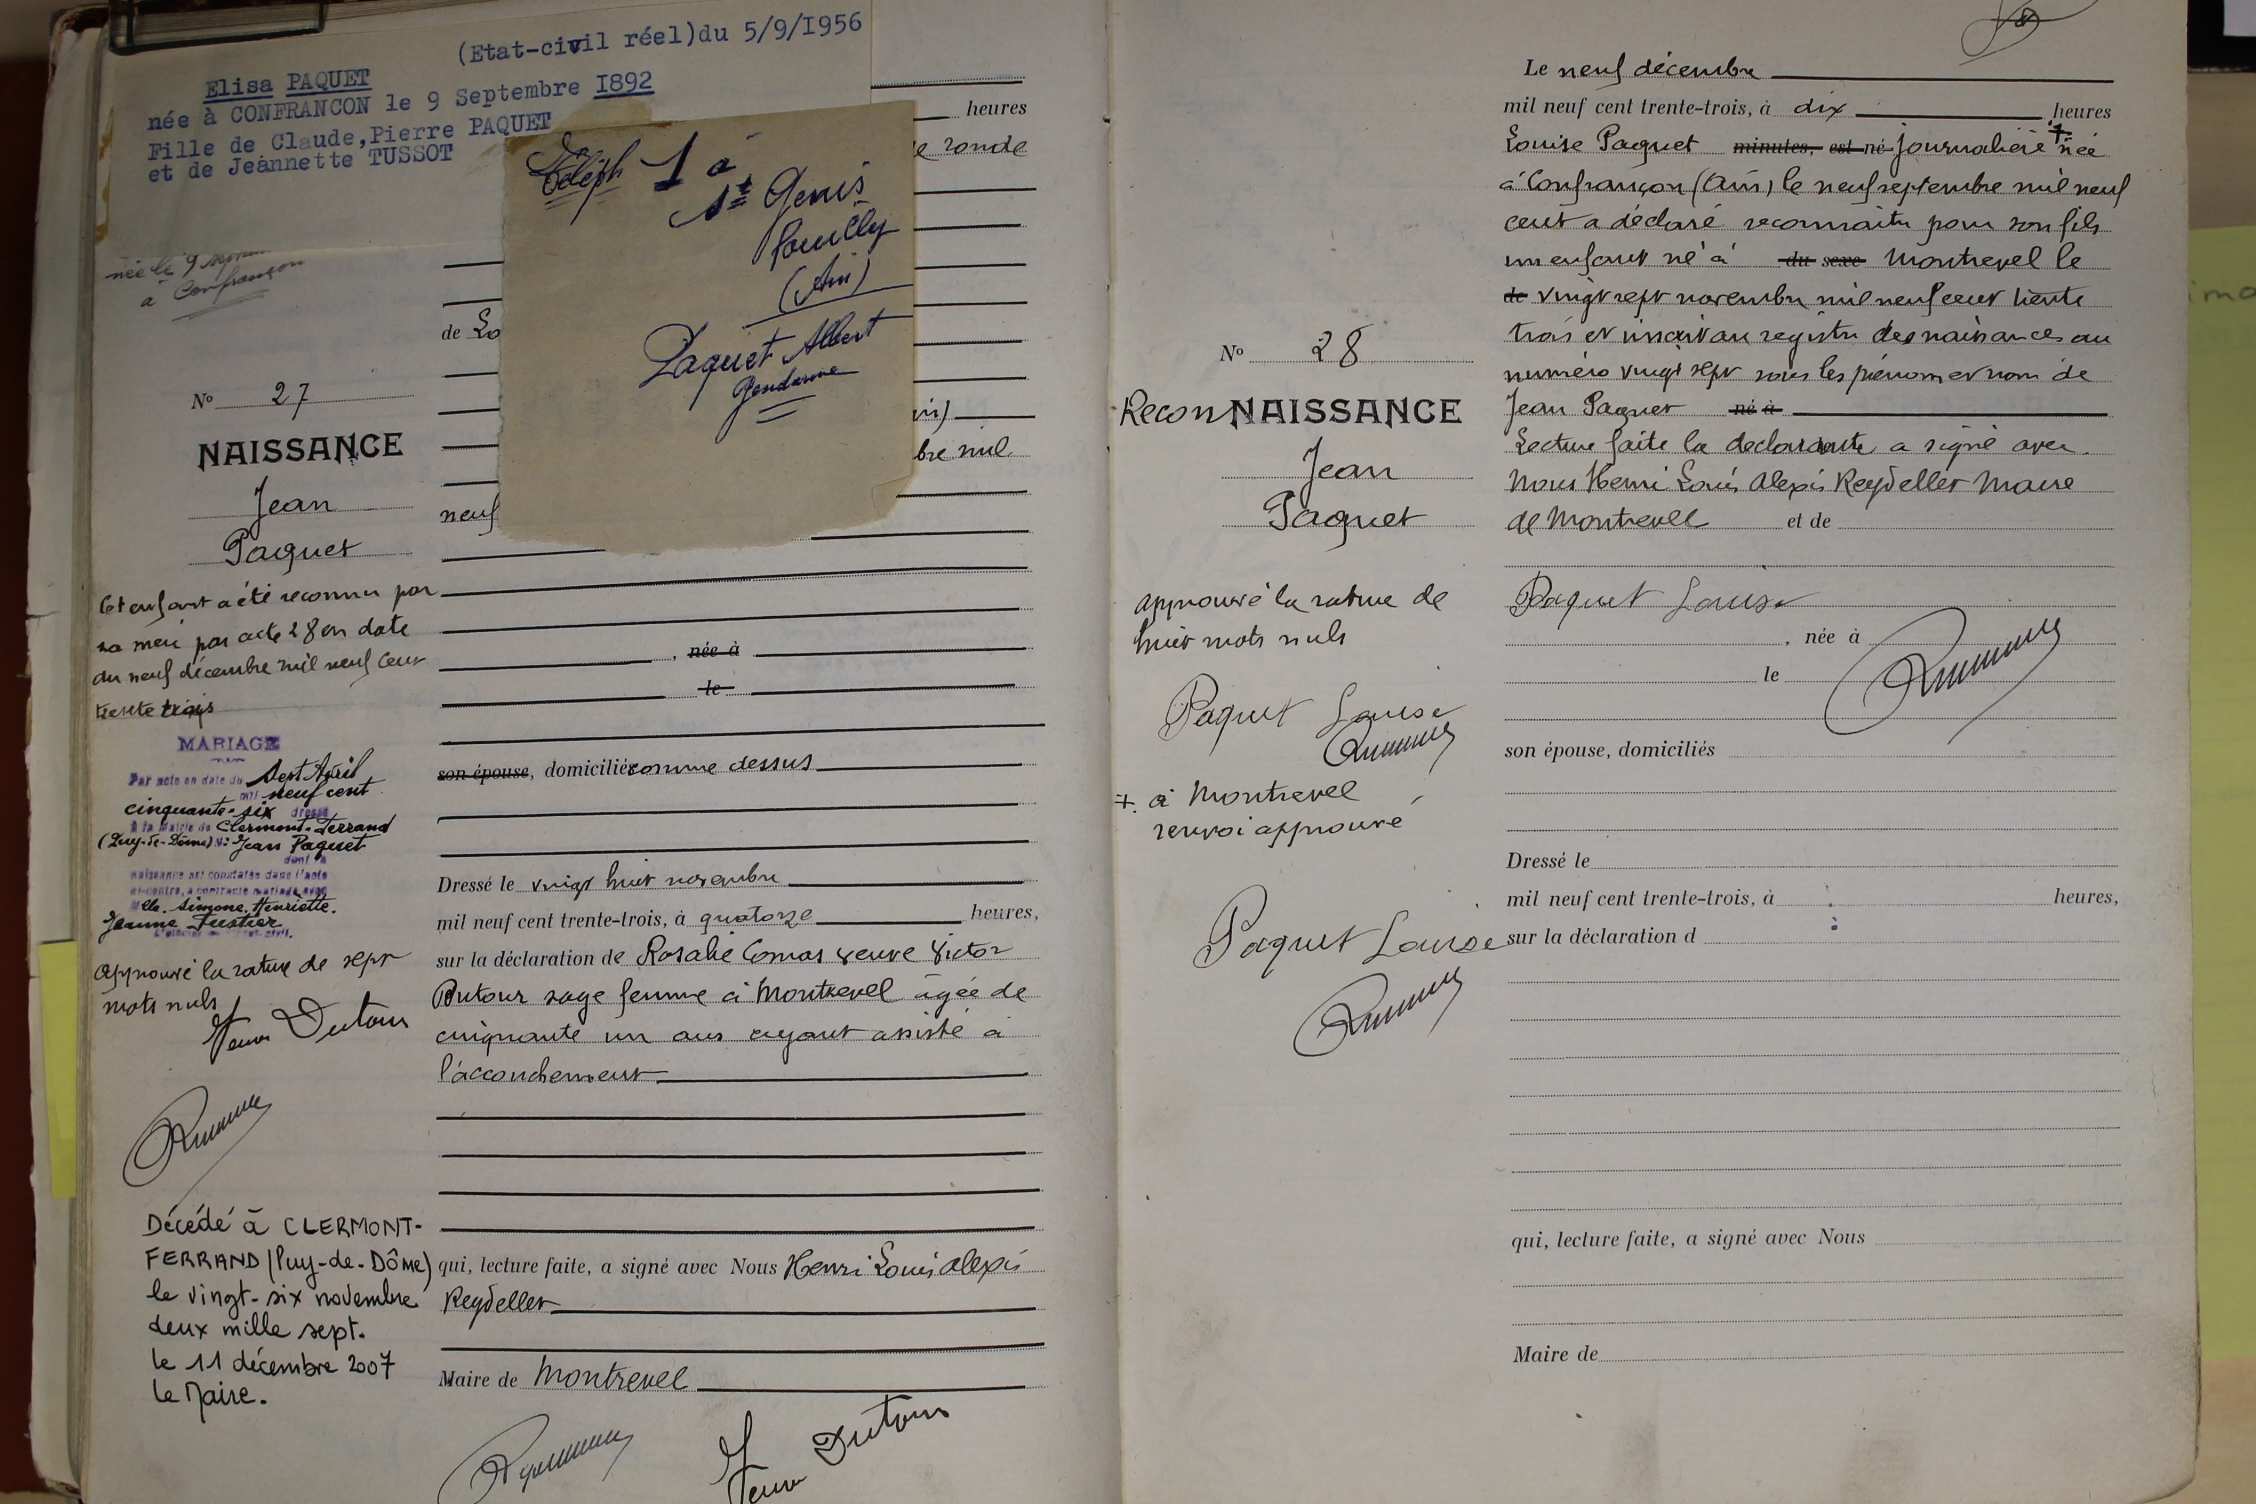 (Etat-civil réel)du 5/9/I956
Elisa PAQUET
née à CONFRANCON le 9 Septembre I892
Fille de Claude,Pierre PAQUET
et de Jeannette TUSSOT
née le 9
à Confrançon
Téléph 1 à
St Genis
Pouilly
(Ain)
Paquet Albert
Gendarme
heures
ronde
de Lo
bre mil
neuf
No 27
NAISSANCE
Jean
Paquet
Cet enfant a été reconnu par
sa mère par acte 28 en date
du neuf décembre mil neuf cent
trente trois
MARIAGE
Par acte en date du Sept Avril
mil neuf cent
cinquante-six dressé
à la Mairie de Clermont-Ferrand
(Puy-de-Dôme) M: Jean Paquet
dont la
naissance est constatée dans l'acte
ci-contre, a contracté mariage avec
Mlle. Simone, Henriette,
Jeanne Fustier
Approuvé la rature de sept
mots nuls
Veuve Dutour
Décédé à CLERMONT-
FERRAND (Puy-de-Dôme)
le vingt-six novembre
deux mille sept.
le 11 décembre 2007
Le Maire.
, née à
le
son épouse, domiciliés comme dessus
Dressé le vingt huit novembre
mil neuf cent trente-trois, à quatorze heures,
sur la déclaration de Rosalie Comas veuve Victor
Dutour sage femme à Montrevel âgée de
cinquante un ans ayant assisté à
l'accouchement
qui, lecture faite, a signé avec Nous Henri Louis Alexis
Reydellet
Maire de Montrevel
Veuve Dutour
No 28
ReconNAISSANCE
Jean
Paquet
Approuvé la rature de
huit mots nuls
Paquet Louise
+ à Montrevel
renvoi approuvé
Paquet Louise
Le neuf décembre
mil neuf cent trente-trois, à dix heures
Louise Paquet minutes, est né journalière + née
à Confrançon (Ain) le neuf septembre mil neuf
cent a déclaré reconnaitre pour son fils
un enfant né à du sexe Montrevel le
de vingt sept novembre mil neuf cent trente
trois et inscrit au registre des naissances au
numéro vingt sept sous les prénom et nom de
Jean Paquet né à
Lecture faite la déclarante a signé avec
Nous Henri Louis Alexis Reydellet Maire
de Montrevel et de
Paquet Louise
, née à
le
son épouse, domiciliés
Dressé le
mil neuf cent trente-trois, à heures,
sur la déclaration d
qui, lecture faite, a signé avec Nous
Maire de